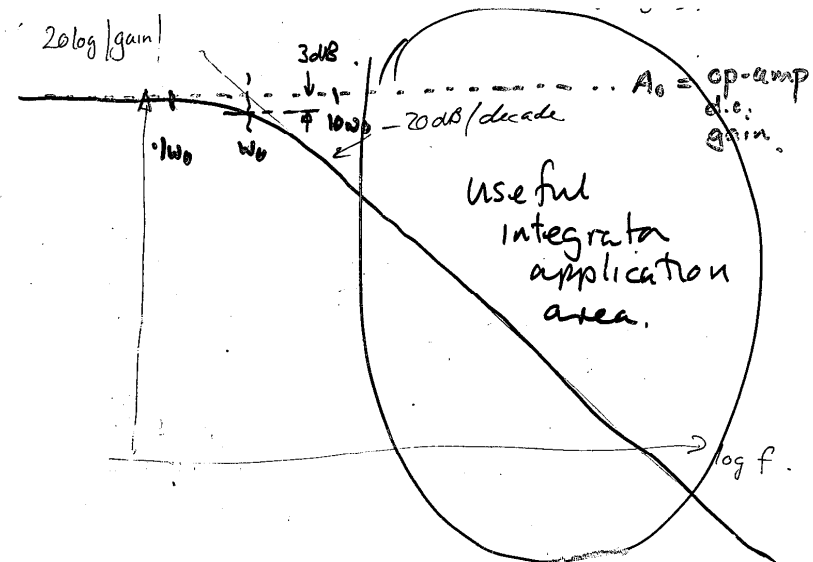 20log|gain|
3dB
A₀ = op-amp
d.c.
gain.
·1ω₀
ω₀
10ω₀
-20dB/decade
useful
integrator
application
area.
log f.